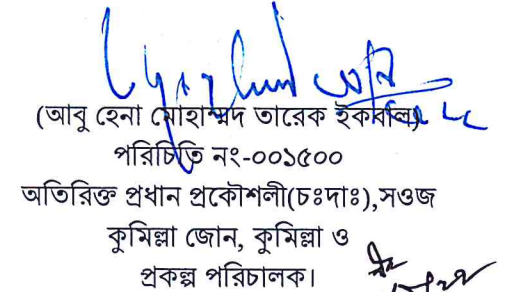 (আবু হেনা মোহাম্মদ তারেক ইকবাল)
পরিচিতি নং-০০১৫০০
অতিরিক্ত প্রধান প্রকৌশলী(চঃদাঃ),সওজ
কুমিল্লা জোন, কুমিল্লা ও
প্রকল্প পরিচালক।